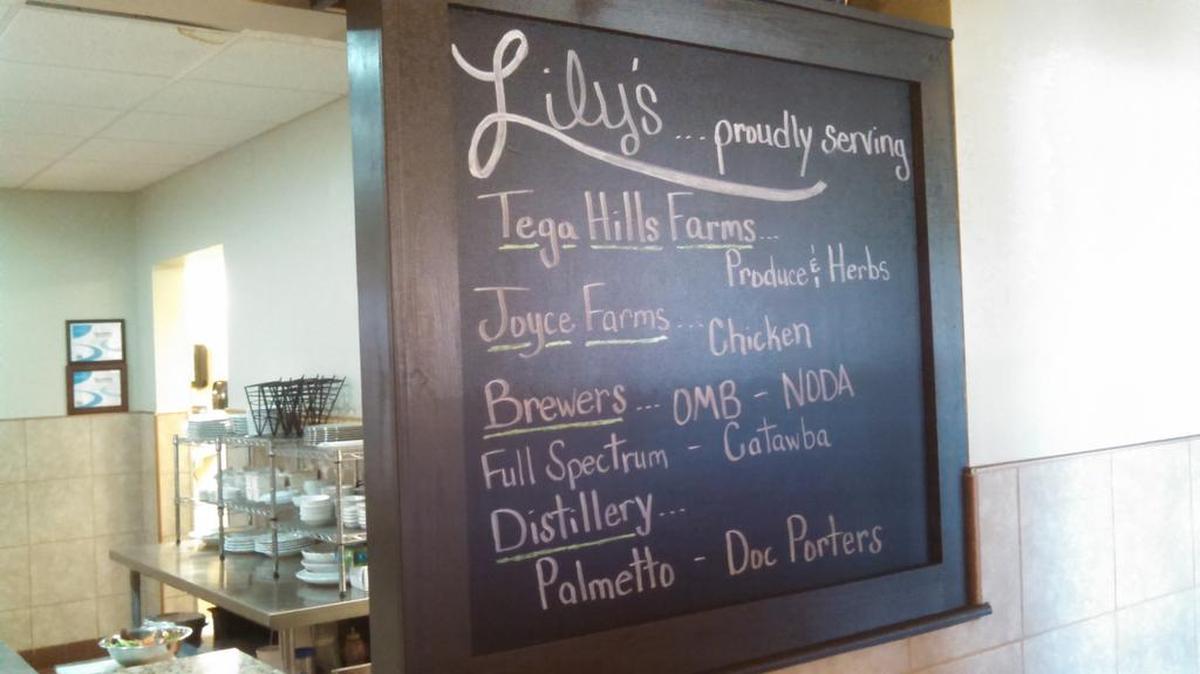 Lily's ... proudly serving
Tega Hills Farms...
Produce & Herbs
Joyce Farms... Chicken
Brewers ... OMB - NODA
Full Spectrum - Catawba
Distillery...
Palmetto - Doc Porters